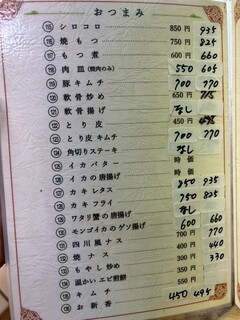 おつまみ
115 シロコロ 850円 935
116 焼もつ 750円 825
117 もつ煮 600円 660
118 肉皿(焼肉のみ) 550 605
119 豚キムチ 700 770
120 軟骨炒め 650円
121 軟骨揚げ なし
122 とり皮 450円
123 とり皮キムチ 700 770
124 角切りステーキ なし
125 イカバター 時価
126 イカの唐揚げ 時価
127 カキレタス 850 935
128 カキフライ 750円 825
129 ワタリ蟹の唐揚げ なし
130 モンゴイカのゲソ揚げ 600 660
131 四川風ナス 700円 770
132 焼ナス 400円 440
133 もやし炒め 300円 330
134 温かいエビ煎餅 350円
135 キムチ 550円
136 お新香 450 495